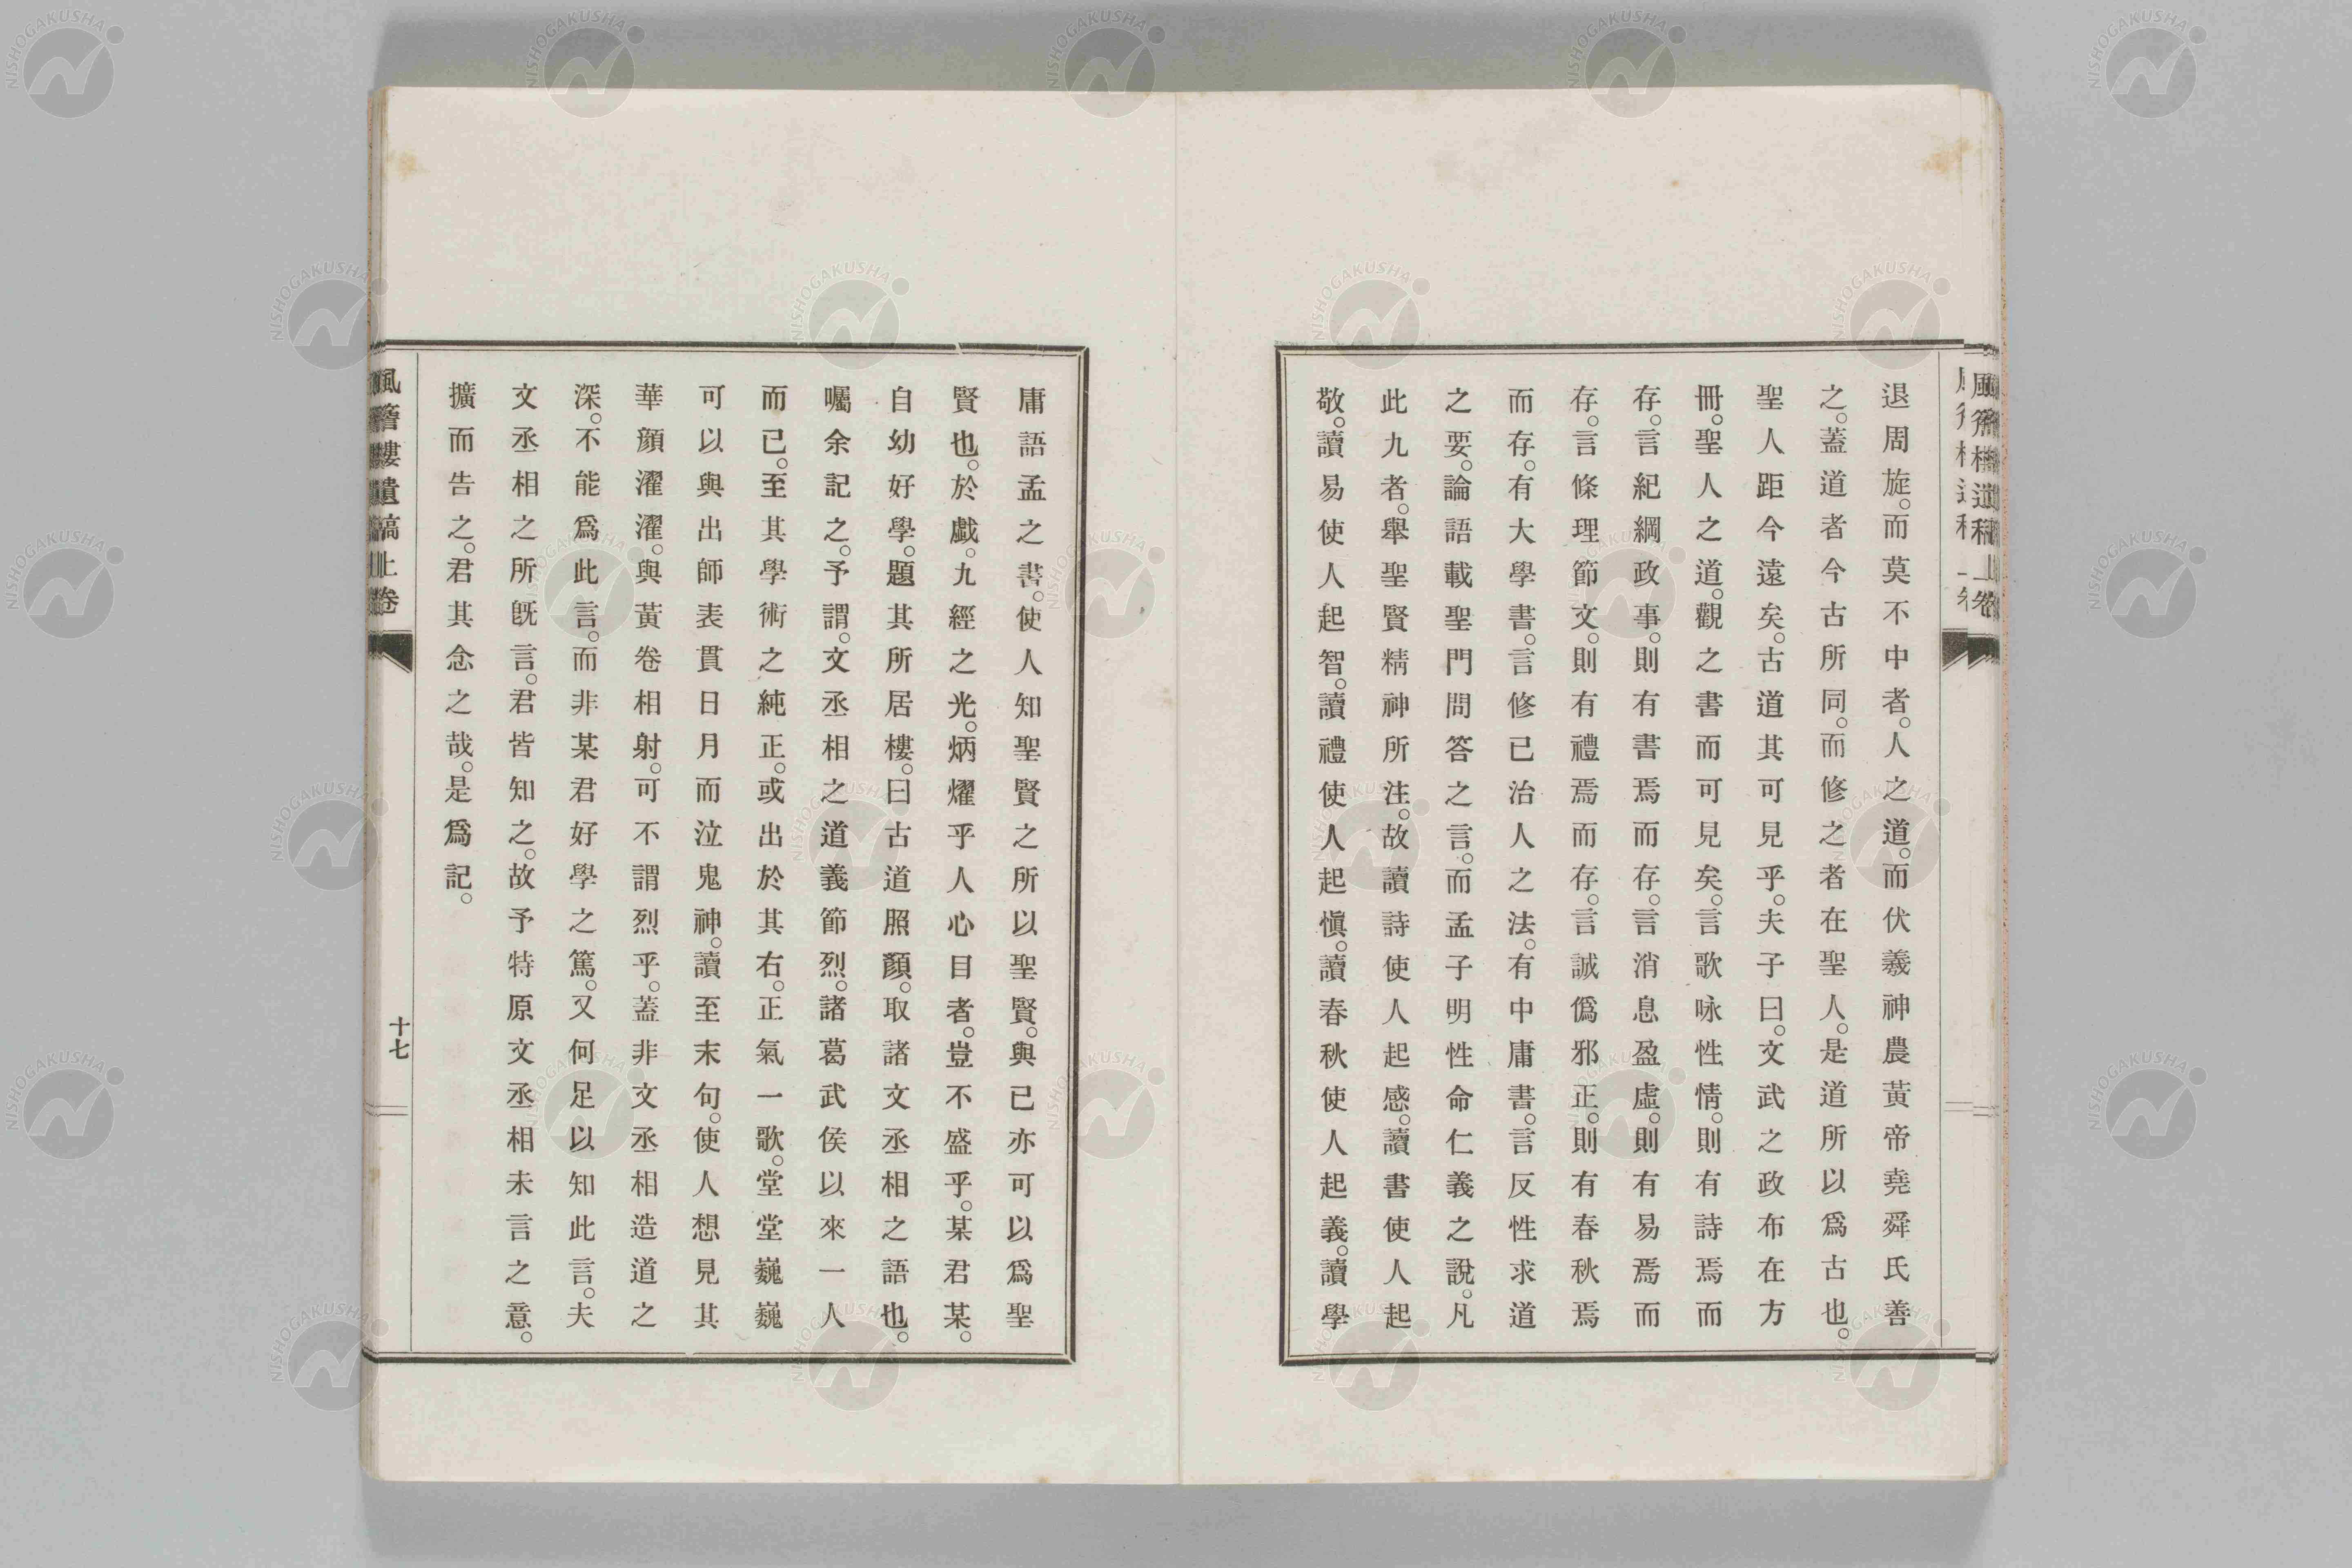 退周旋。而莫不中者。人之道。而伏羲神農黃帝堯舜氏善
之。蓋道者今古所同。而修之者在聖人。是道所以爲古也。
聖人距今遠矣。古道其可見乎。夫子曰。文武之政布在方
冊。聖人之道。觀之書而可見矣。言歌咏性情。則有詩焉而
存。言紀綱政事。則有書焉而存。言消息盈虛。則有易焉而
存。言條理節文。則有禮焉而存。言誠僞邪正。則有春秋焉
而存。有大學書。言修已治人之法。有中庸書。言反性求道
之要。論語載聖門問答之言。而孟子明性命仁義之說。凡
此九者。舉聖賢精神所注。故讀詩使人起感。讀書使人起
敬。讀易使人起智。讀禮使人起愼。讀春秋使人起義。讀學
庸語孟之書。使人知聖賢之所以聖賢。與已亦可以爲聖
賢也。於戲。九經之光。炳燿乎人心目者。豈不盛乎。某君某。
自幼好學。題其所居樓。曰古道照顏。取諸文丞相之語也。
囑余記之。予謂。文丞相之道義節烈。諸葛武侯以來一人
而已。至其學術之純正。或出於其右。正氣一歌。堂堂巍巍
可以與出師表貫日月而泣鬼神。讀至末句。使人想見其
華顏濯濯。與黃卷相射。可不謂烈乎。蓋非文丞相造道之
深。不能爲此言。而非某君好學之篤。又何足以知此言。夫
文丞相之所旣言。君皆知之。故予特原文丞相未言之意。
擴而告之。君其念之哉。是爲記。
風簷樓遺稿上卷
十七
NISHOGAKUSHA